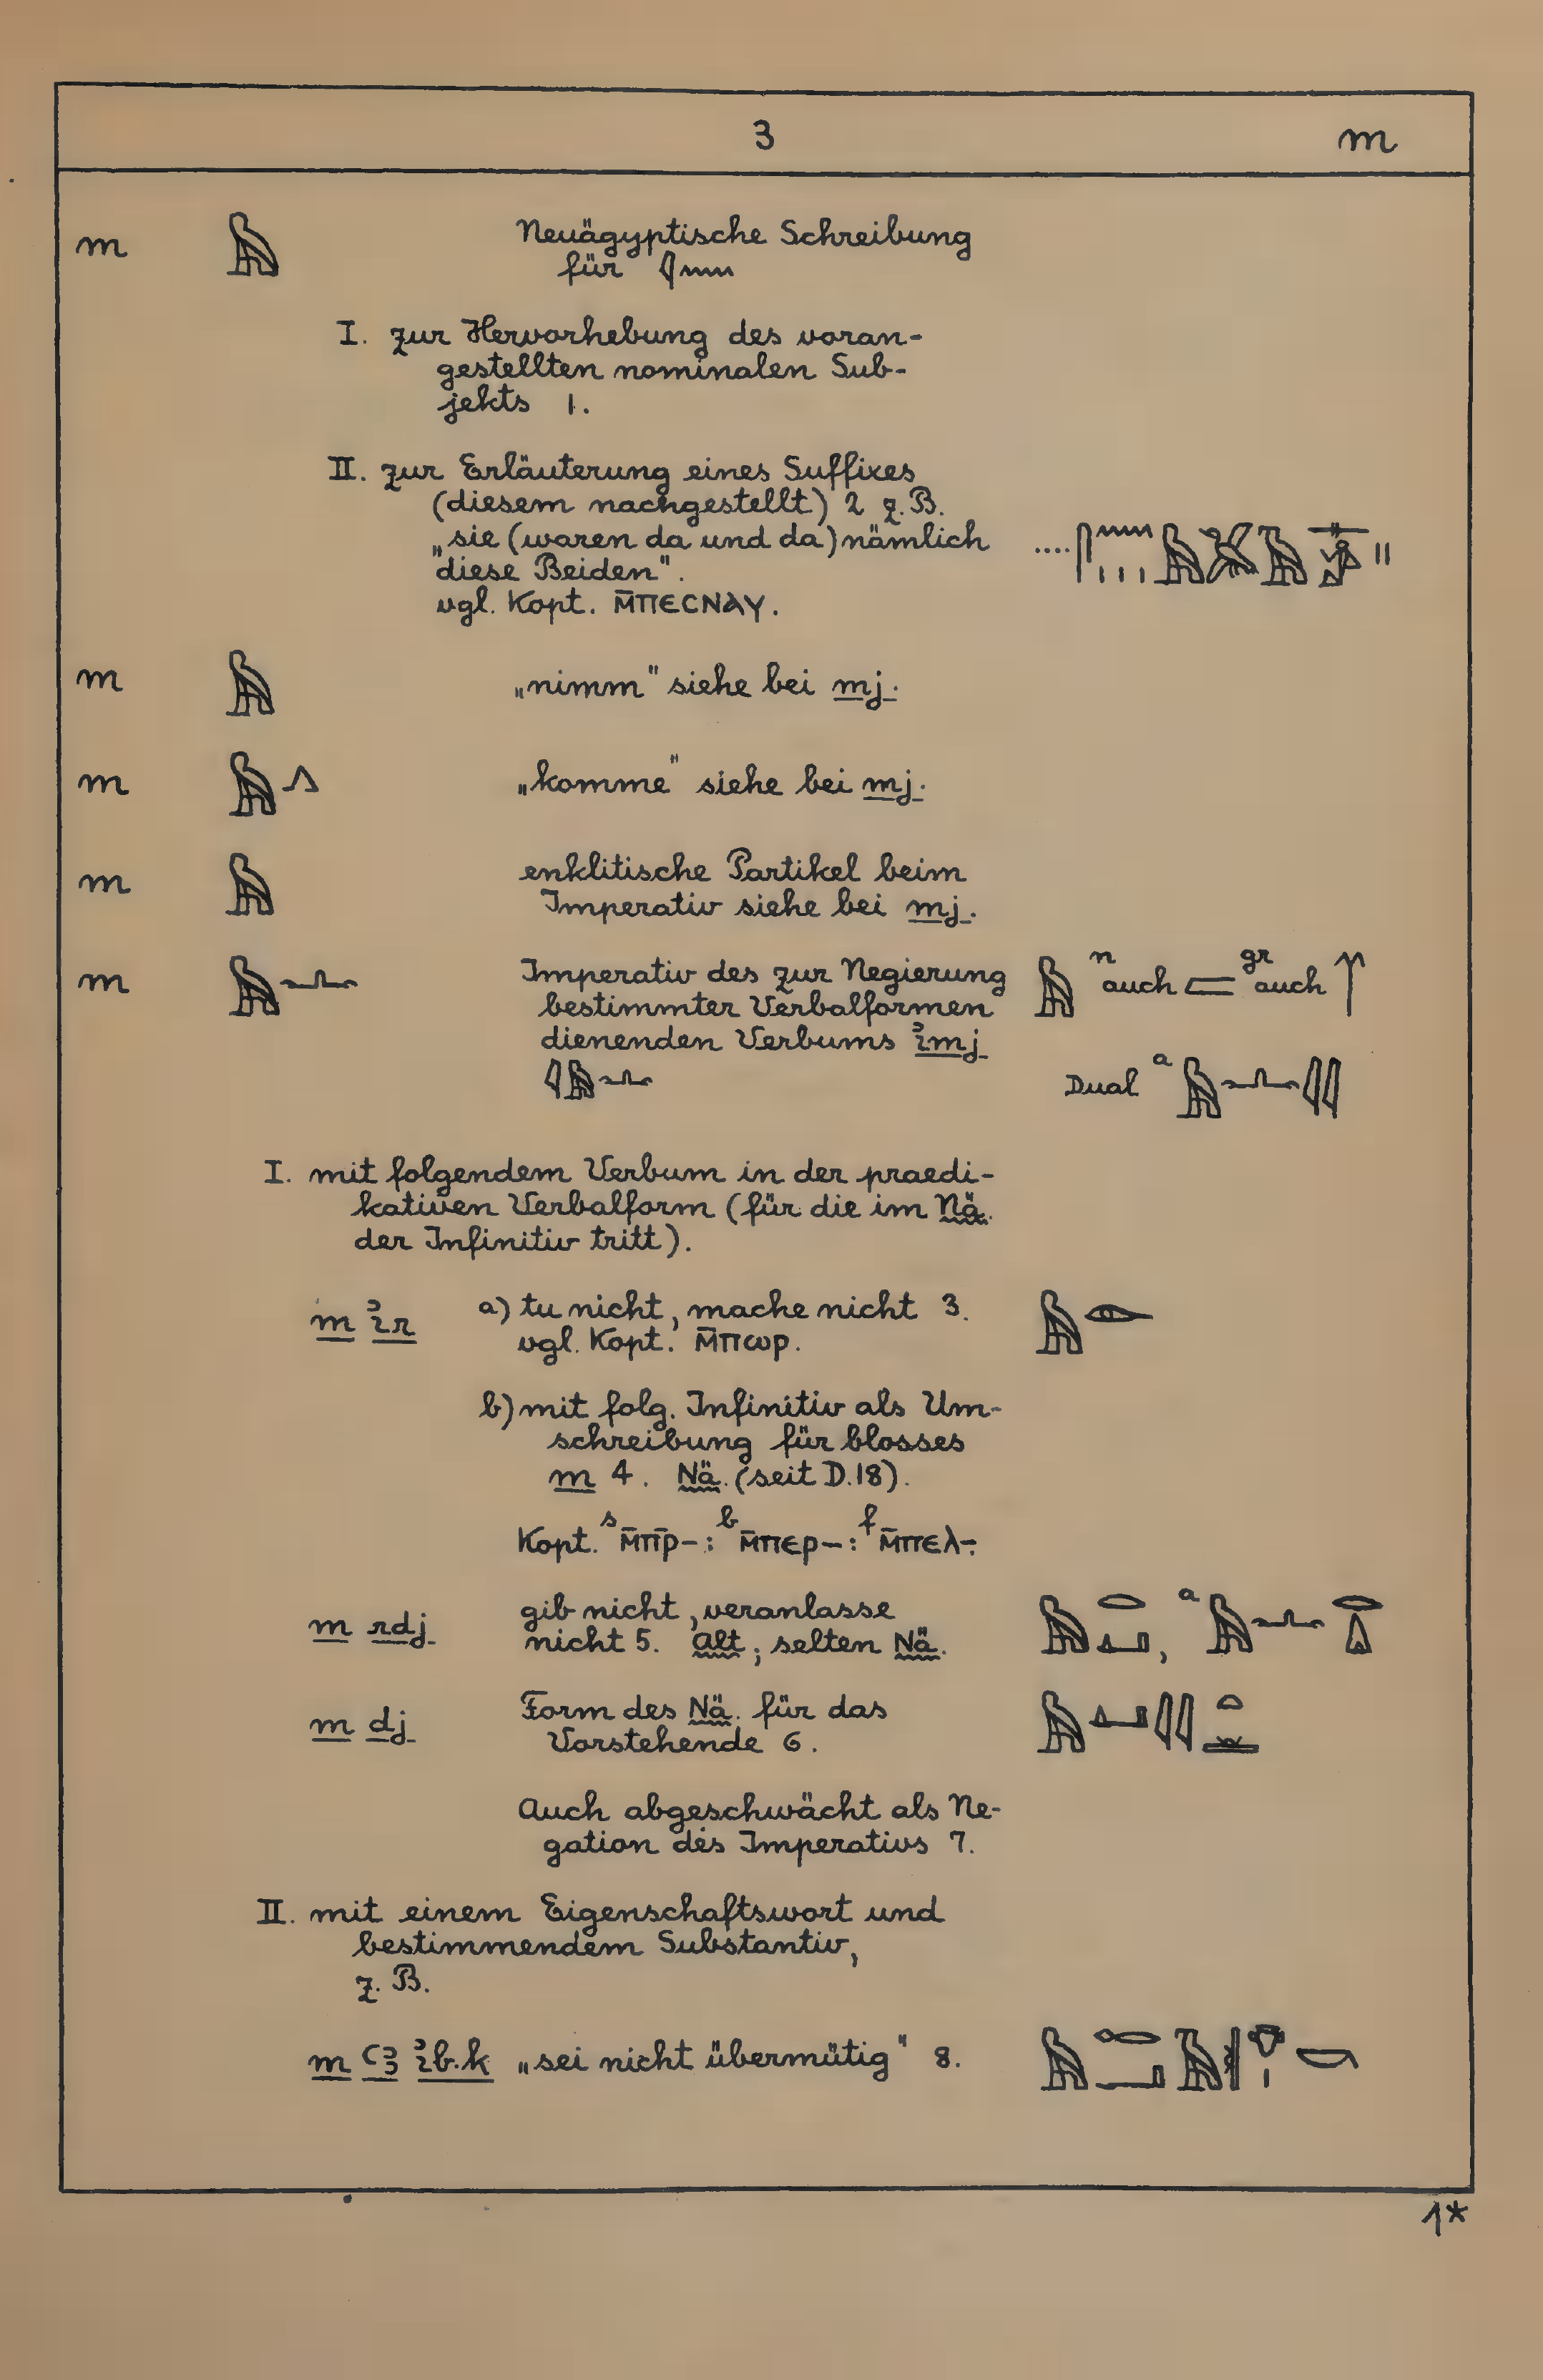 3 m
m 𓅓 Neuägyptische Schreibung
für 𓇋𓈖
I. zur Hervorhebung des voran-
gestellten nominalen Sub-
jekts 1.
II. zur Erläuterung eines Suffixes
(diesem nachgestellt) 2 z.B.
„sie (waren da und da) nämlich
diese Beiden".
vgl. Kopt. ⲙ̄ⲡⲉⲥⲛⲁⲩ.
m 𓅓 „nimm" siehe bei mj.
m 𓅓𓂻 „komme" siehe bei mj.
m 𓅓 enklitische Partikel beim
Imperativ siehe bei mj.
m 𓅓𓂜 Imperativ des zur Negierung 𓅓 n auch 𓐝 gr auch
bestimmter Verbalformen
dienenden Verbums ı͗mj
𓇋𓅓𓂜 Dual a 𓅓𓂜𓇌
I. mit folgendem Verbum in der praedi-
kativen Verbalform (für die im Nä.
der Infinitiv tritt).
m ı͗r a) tu nicht, mache nicht 3. 𓅓𓁹
vgl. Kopt. ⲙ̄ⲡⲱⲣ.
b) mit folg. Infinitiv als Um-
schreibung für blosses
m 4. Nä. (seit D.18).
Kopt. s ⲙ̄ⲡⲣ̄-: b ⲙ̄ⲡⲉⲣ-: f ⲙ̄ⲡⲉⲗ-:
m rdj gib nicht, veranlasse 𓅓𓂋𓂞, a 𓅓𓂜𓂋𓏙
nicht 5. Alt; selten Nä.
m dj Form des Nä. für das 𓅓𓂞𓇌𓏏𓍜
Vorstehende 6.
Auch abgeschwächt als Ne-
gation des Imperativs 7.
II. mit einem Eigenschaftswort und
bestimmendem Substantiv,
z. B.
m ꜥꜣ ı͗b.k „sei nicht übermütig" 8.
1*